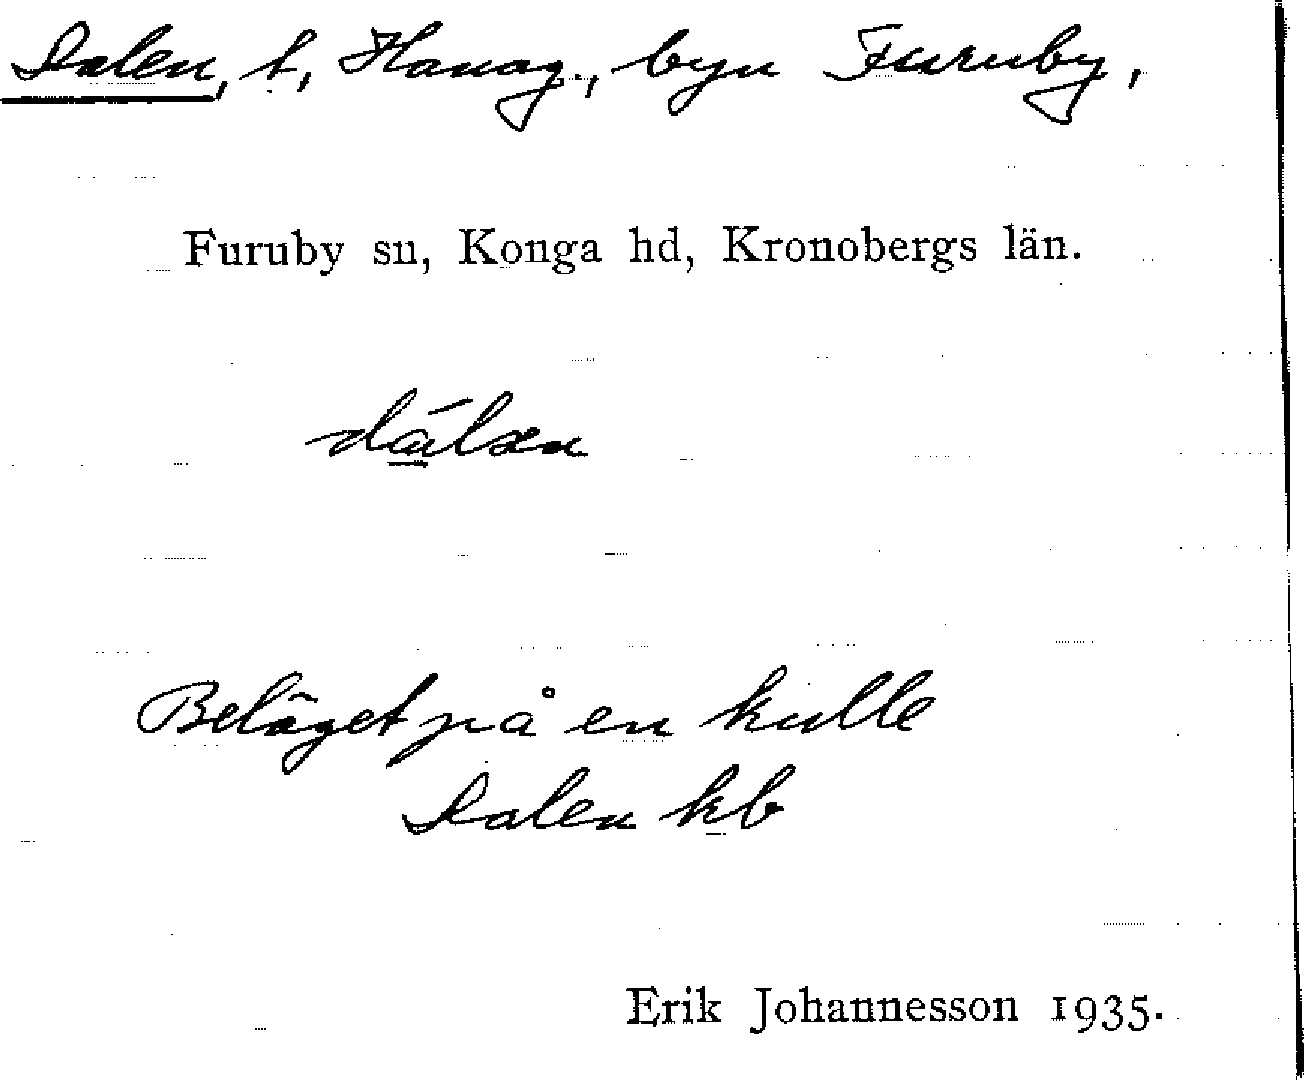 Dalen, t, Hanag., byn Furuby,
Furuby sn, Konga hd, Kronobergs län.
Beläget på en kulle
Dalen kb
Erik Johannesson 1935.